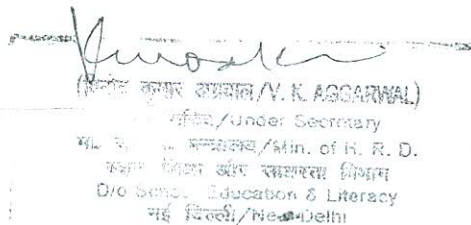 कुमार अग्रवाल/V. K. AGGARWAL)
/Under Secretary
/Min. of H. R. D.
शिक्षा और साक्षरता विभाग
D/o School Education & Literacy
नई दिल्ली/New Delhi